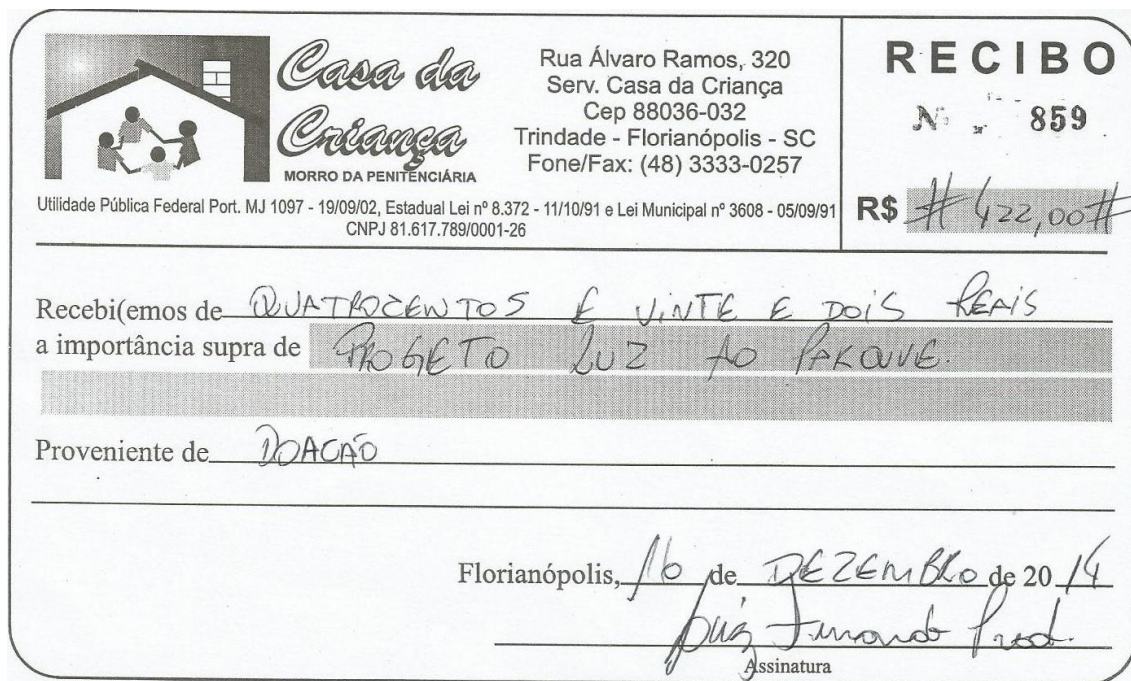 Casa da
Criança
MORRO DA PENITENCIÁRIA
Rua Álvaro Ramos, 320
Serv. Casa da Criança
Cep 88036-032
Trindade - Florianópolis - SC
Fone/Fax: (48) 3333-0257
Utilidade Pública Federal Port. MJ 1097 - 19/09/02, Estadual Lei nº 8.372 - 11/10/91 e Lei Municipal nº 3608 - 05/09/91
CNPJ 81.617.789/0001-26
RECIBO
Nº 859
R$ # 422,00 #
Recebi(emos de QUATROCENTOS E VINTE E DOIS REAIS
a importância supra de PROGETO LUZ AO PARQUE.
Proveniente de DOACÃO
Florianópolis, 16 de DEZEMBRO de 20 14
Luiz Fernando
Assinatura